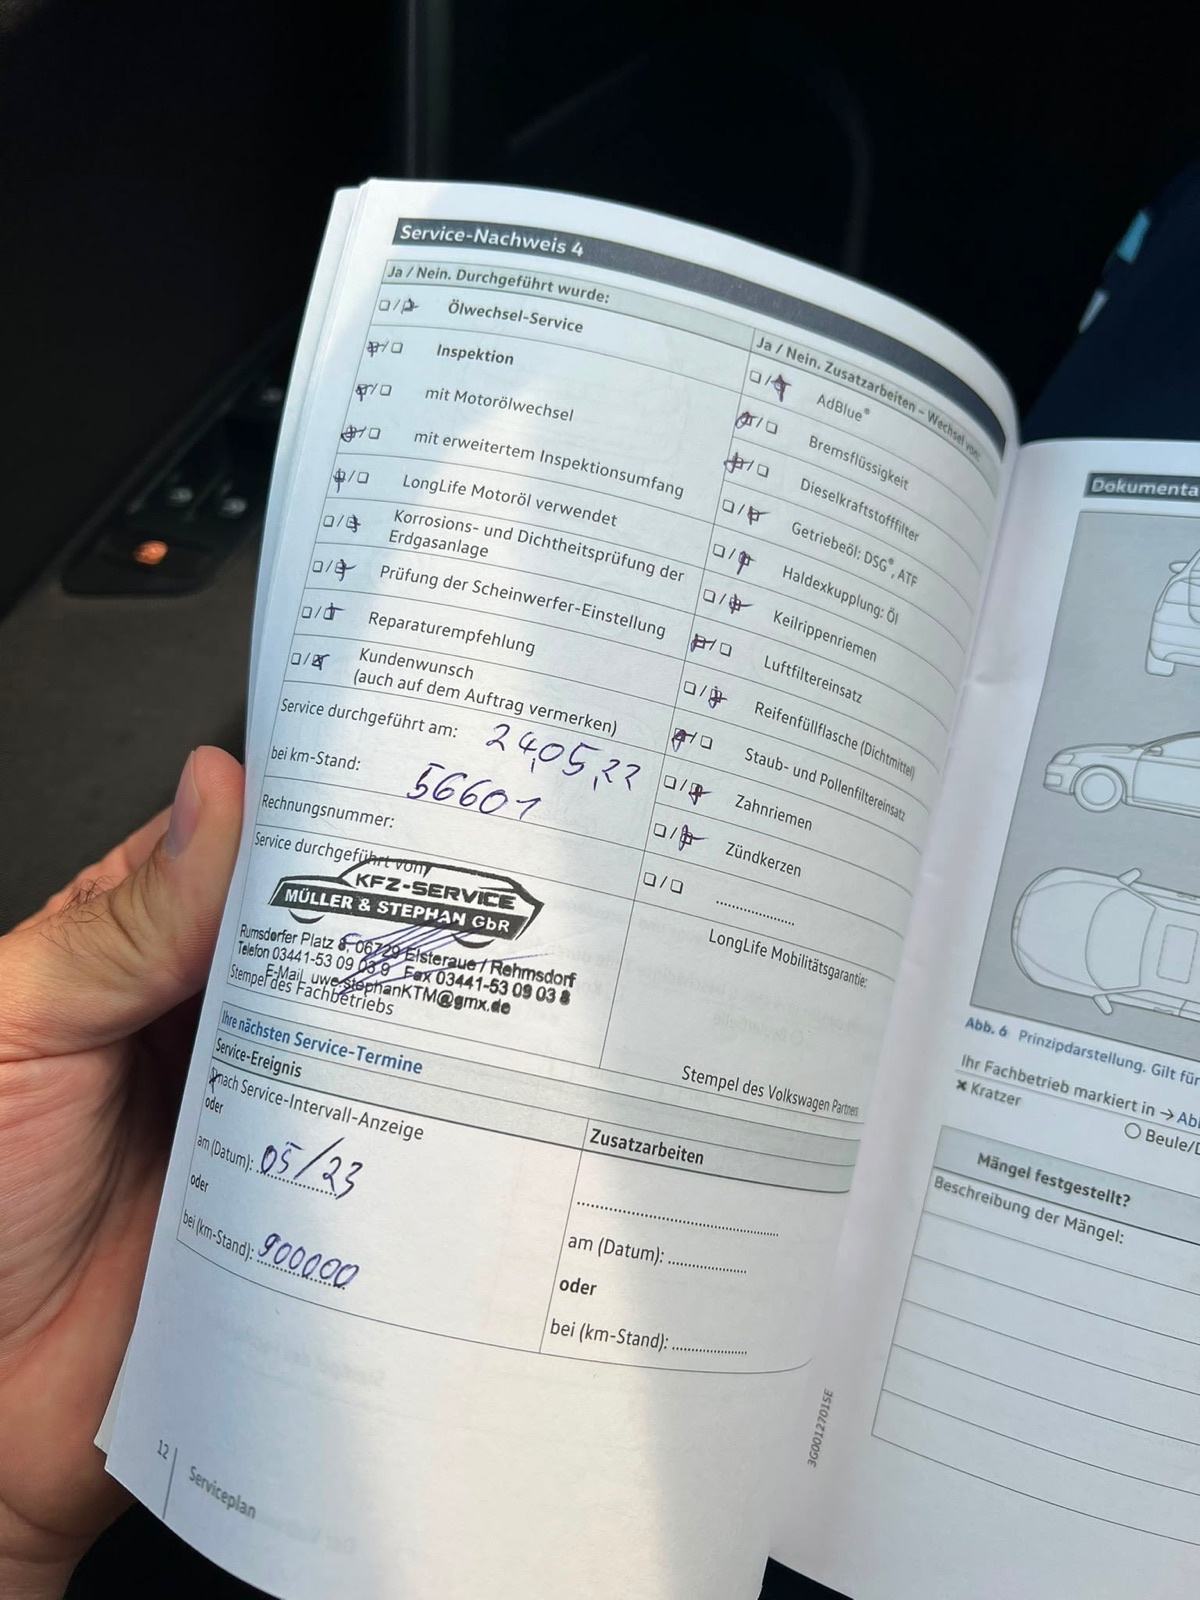 Service-Nachweis 4
Ja / Nein. Durchgeführt wurde:
Ölwechsel-Service
Inspektion
mit Motorölwechsel
mit erweitertem Inspektionsumfang
LongLife Motoröl verwendet
Korrosions- und Dichtheitsprüfung der
Erdgasanlage
Prüfung der Scheinwerfer-Einstellung
Reparaturempfehlung
Kundenwunsch
(auch auf dem Auftrag vermerken)
Service durchgeführt am: 24.05.22
bei km-Stand: 56601
Rechnungsnummer:
Service durchgeführt von:
KFZ-SERVICE
MÜLLER & STEPHAN GbR
Rumsdorfer Platz 8, 06729 Elsteraue / Rehmsdorf
Telefon 03441-53 09 03 9 Fax 03441-53 09 03 8
E-Mail uwe.stephanKTM@gmx.de
Stempel des Fachbetriebs
Ja / Nein. Zusatzarbeiten – Wechsel von:
AdBlue®
Bremsflüssigkeit
Dieselkraftstofffilter
Getriebeöl: DSG®, ATF
Haldexkupplung: Öl
Keilrippenriemen
Luftfiltereinsatz
Reifenfüllflasche (Dichtmittel)
Staub- und Pollenfiltereinsatz
Zahnriemen
Zündkerzen
LongLife Mobilitätsgarantie:
Stempel des Volkswagen Partners
Ihre nächsten Service-Termine
Service-Ereignis
nach Service-Intervall-Anzeige
oder
am (Datum): 05/23
oder
bei (km-Stand): 900000
Zusatzarbeiten
am (Datum):
oder
bei (km-Stand):
12
Serviceplan
3G0012701SE
Dokumenta
Abb. 6 Prinzipdarstellung. Gilt für
Ihr Fachbetrieb markiert in → Abb
× Kratzer
Beule/D
Mängel festgestellt?
Beschreibung der Mängel: